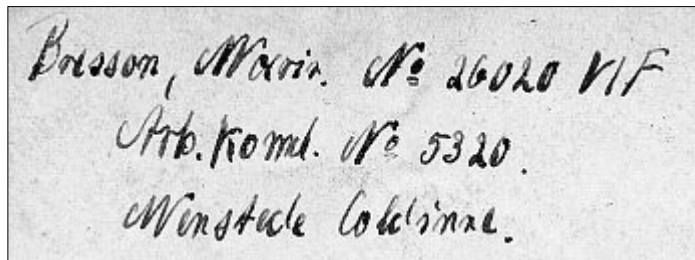 Bresson, Marin. No 26020 VI F
Arb. Komd. No 5320.
Menstede Coldinne.